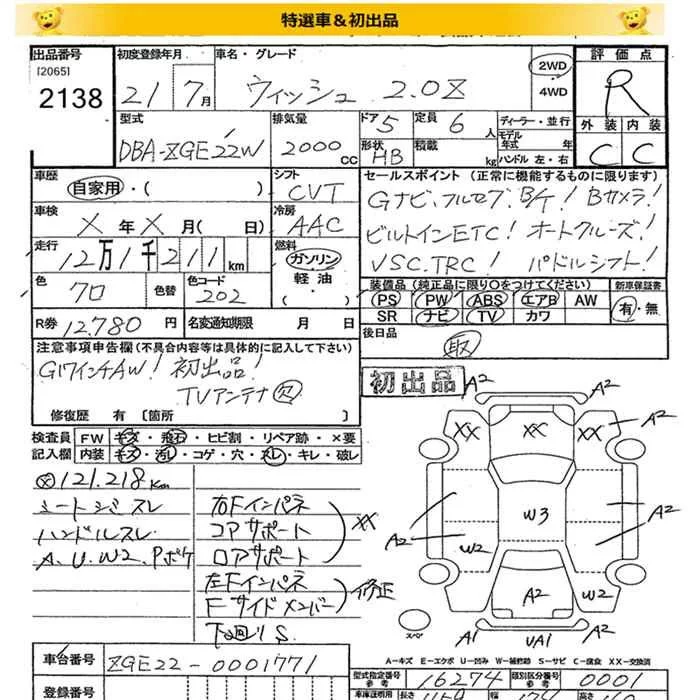 特選車＆初出品
出品番号
[2065]
2138
初度登録年月
21 7月
車名・グレード
ウィッシュ 2.0Z
2WD
4WD
評価点
R
外装 内装
C C
型式
DBA-ZGE22W
排気量
2000 cc
ドア 5
定員 6 人
形状 HB
積載 kg
ディーラー・並行
モデル年式 年
ハンドル 左・右
車歴
自家用・( )
シフト
CVT
車検
X 年 X 月( 日)
冷房
AAC
走行
12万1千211km
燃料
ガソリン
軽油
・( )
色
クロ
色替
色コード
202
R券 12,780 円
名変通知期限 月 日
セールスポイント(正常に機能するものに限ります)
Gナビ,フルセグ,B/T! Bカメラ!
ビルトインETC! オートクルーズ!
VSC.TRC! パドルシフト!
装備品(純正品に限り○をつけてください)
新車保証書
PS PW ABS エアB AW
SR ナビ TV カワ
有・無
後日品
取
注意事項申告欄(不具合内容等は具体的に記入して下さい)
G17インチAW! 初出品!
TVアンテナ欠
修復歴 有 [箇所 ]
初出品
検査員記入欄
FW キズ・飛石・ヒビ割・リペア跡・×要
内装 キズ・汚レ・コゲ・穴・スレ・キレ・破レ
121.218Km
シートシミスレ
ハンドルスレ
A.U.W2.Pボケ
右Fインパネ
コアサポート
ロアサポート
XX
左Fインパネ
Fサイドメンバー
修正
下回りS
A2
A2
XX XX XX
A2
W3
A2
A2
W2
A2
W2
スペア
A1 UA1
A-キズ E-エクボ U-凹み W-補修跡 S-サビ C-腐食 XX-交換済
車台番号
ZGE22-0001771
登録番号
型式指定番号
参考
16274
類別区分番号
参考
0001
車庫証明用
長さ
幅